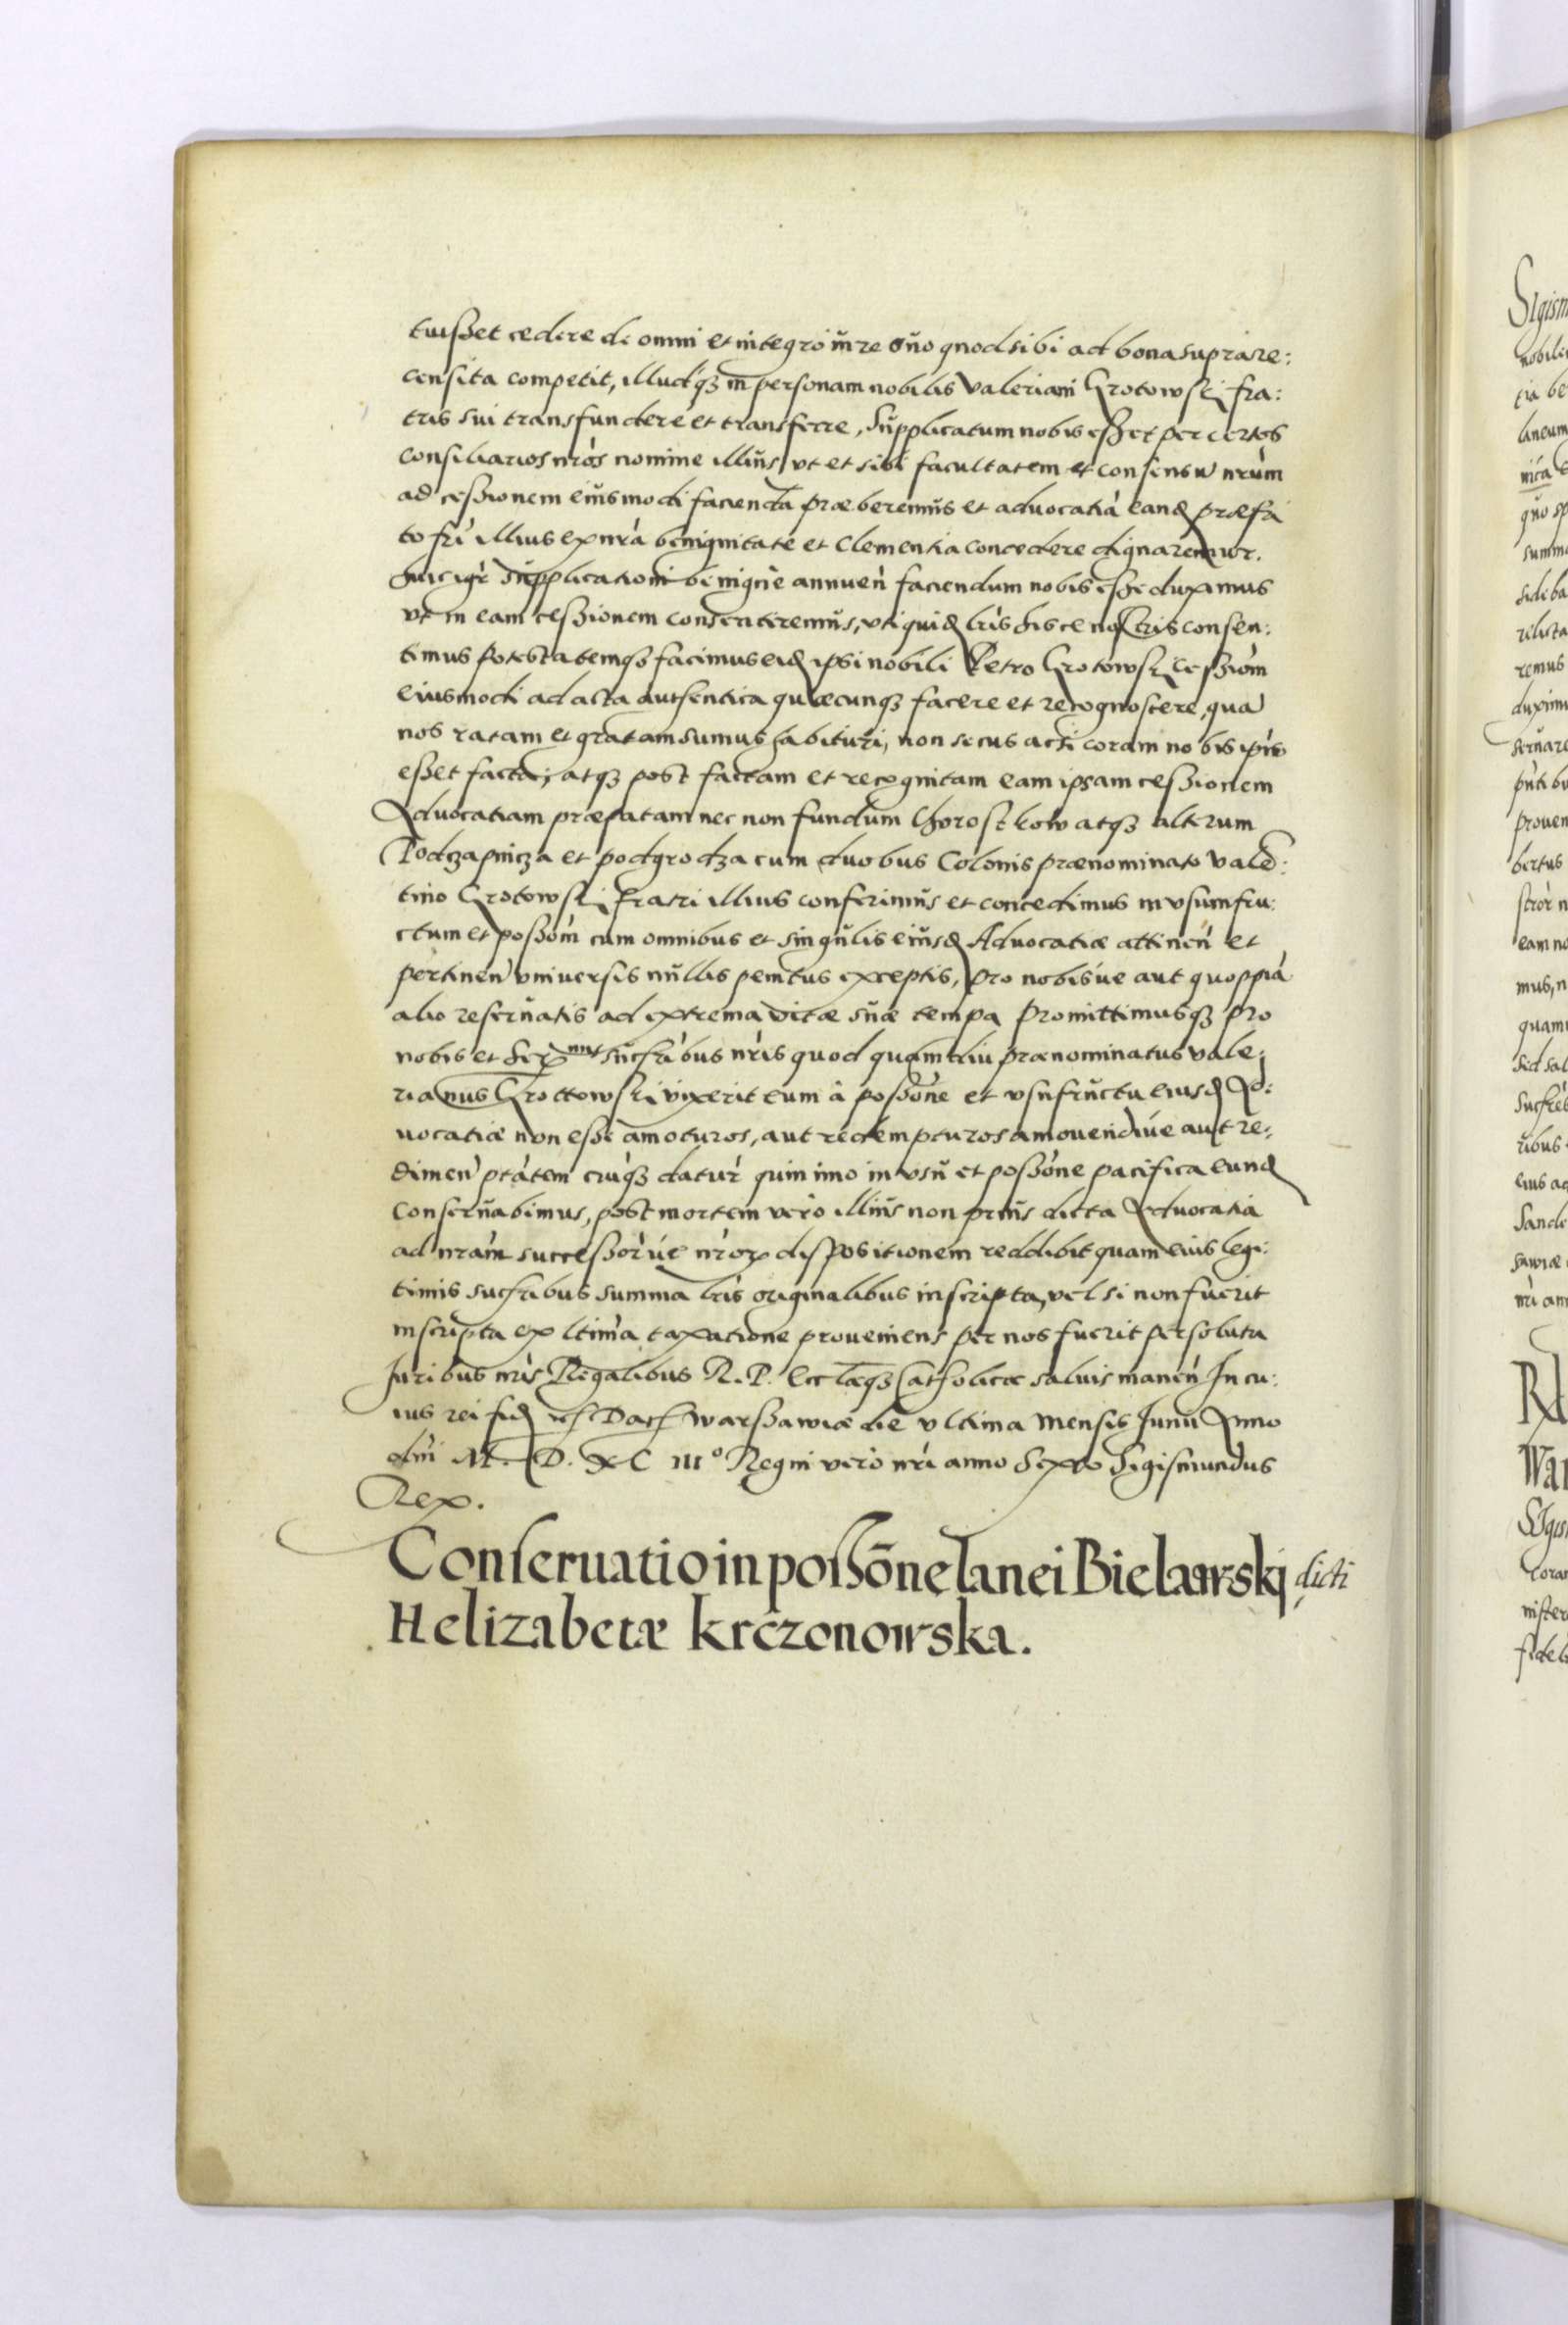 tuisset cedere de omni et integro iure suo quod sibi ad bona suprare:
censita competit, illudq3 in personam nobilis Valeriani Grotowski fra:
tris sui transfundere et transferre, supplicatum nobis esset per certos
consiliarios nros nomine illius, vt et sibi facultatem et consensu nrum
ad cessionem eiusmodi facienda præberemus et advocatia eand præfa
to fri illius ex nra benignitate et Clementia concedere dignaremur.
huic igr supplicationi benigne annuen faciendum nobis esse duximus
vt in eam cessionem consentiremus, vti quid lris hisce nostris consen:
timus potestatemq3 facimus eid ipsi nobili Petro Grotowski cessiom
eiusmodi ad acta authentica quæcunq3 facere et recognoscere, qua
nos ratam et gratam sumus habituri, non secus ac si coram nobis ipis
esset facta, atq3 post factam et recognitam eam ipsam cessionem
Advocatiam præfatam nec non fundum Chorostkow atq3 alterum
Podczapnicza et podgrodza cum duobus Colonis prænominato Vale:
tino Grotowski fratri illius conferimus et concedimus in vsumfru:
ctum et possom cum omnibus et singulis eiusd Advocatiæ attinen et
pertinen vniversis nullis penitus exceptis, pro nobisue aut quoppia
alio reservatis ad extrema vitæ suæ tempa promittimusq3 pro
nobis et Ser nnt sucribus nris quod quamdiu prænominatus Vale:
rianus Grottowski vixerit eum à possone et vsufructu eiusd Ad:
uocatiæ non esse amoturos, aut redempturos amouendiue aut re:
dimen ptatem cuiq3 datur quin imo in vsu et possone pacifica eund
conservabimus, post mortem vero illius non prius dicta Advocatia
ad nram successorue nror dispositionem reddibit quam eius legi:
timis sucribus summa lris originalibus inscripta, vel si non fuerit
inscripta ex ltima taxatione proveniens per nos fuerit persoluta
Iuribus nris Regalibus R. P. Ecclæq3 Catholicæ salvis manen In cu:
ius rei fid Dat Warssawiæ die vltima Mensis Iunii Anno
dni M. D. XC IIIº Regni vero nri anno Sexto Sigismundus
Rex.
Conseruatio in possōne lanei Bielawskj dicti
Helizabetæ krczonowska.